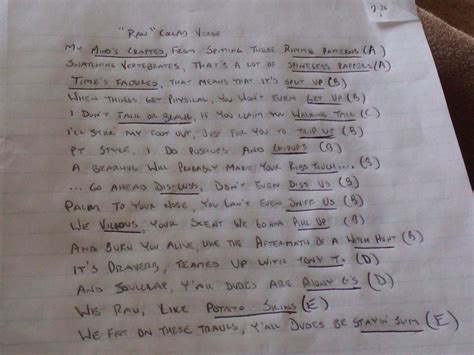 "Raw" Collab Verse
My Mind's Crafted, From Spitting These Rhyme Patterns (A)
Snatching Vertebrates, That's A Lot Of Spineless Rappers (A)
Time's Factured, That Means That It's Split Up (B)
When Things Get Physical, You Won't Even Get Up (B)
I Don't Talk Or Brawl, If You Claim You Walking Tall (C)
I'll Still My Foot Out, Just For You To Trip Up (B)
PT Style, I Do Pushups And Chinups (B)
A Will Probably Make Your Ribs Touch... (B)
... Go Ahead Discuss, Don't Even Diss Us (B)
Palm To Your Nose, You Can't Even Sniff Us (B)
We Your Scent We Gonna Up (B)
And Burn You Alive, Like The Aftermath Of A Witch Hunt (B)
It's Drayers, Teamed Up With Tony T. (D)
And Soulclap, Y'all Dudes Are G's (D)
We Raw, Like Potato Skins (E)
We Fat On These Tracks, Y'all Dudes Be Stayin' Slim (E)